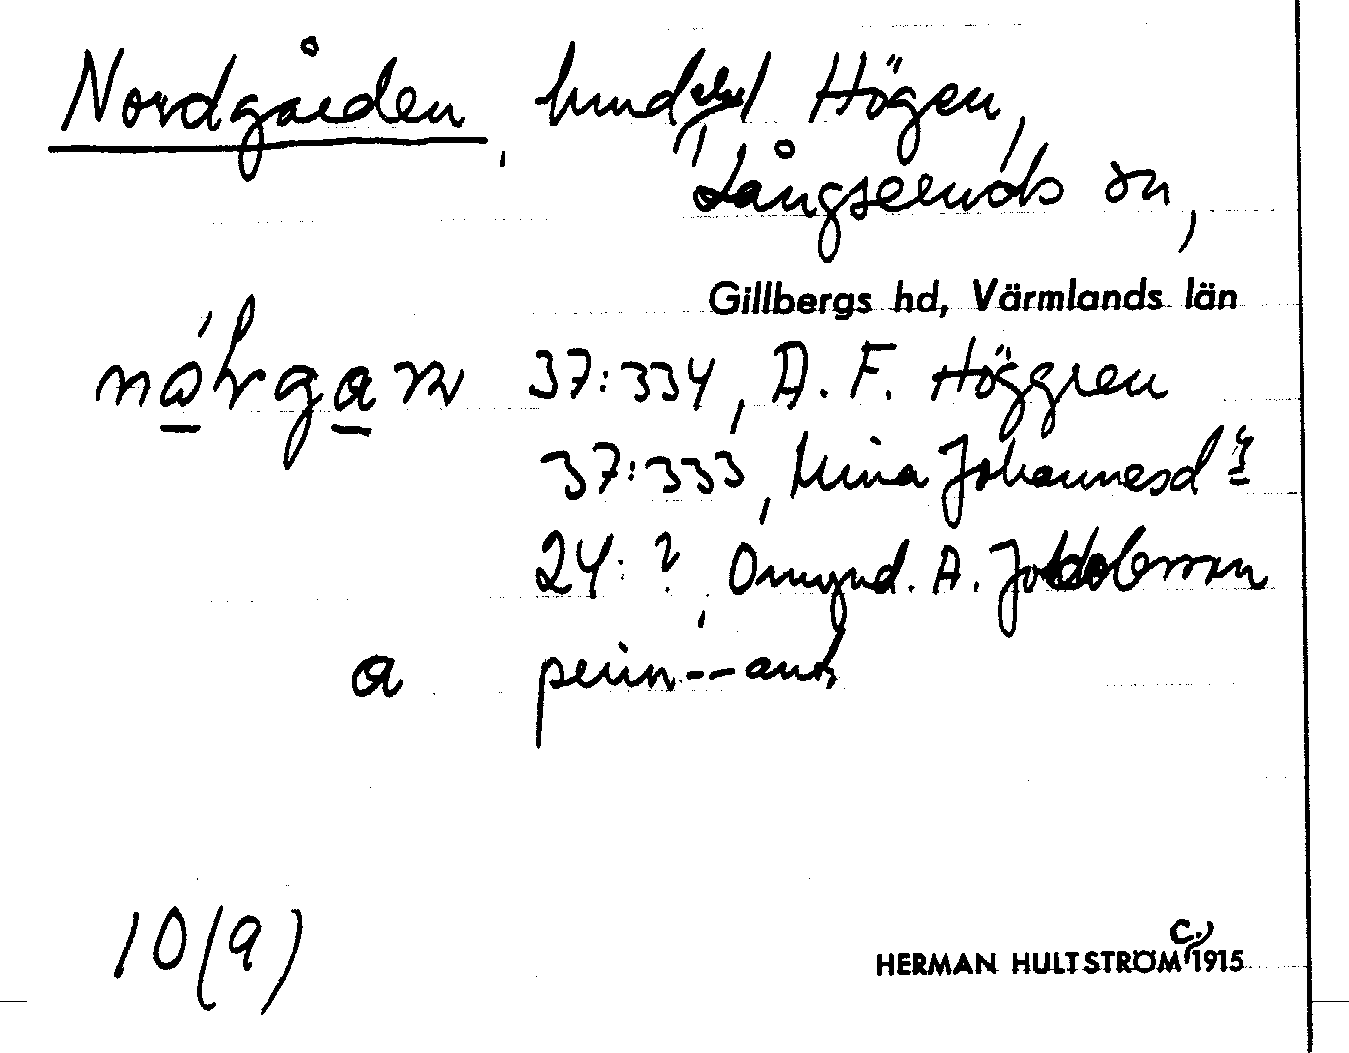 Nordgården, hmd Högen,
Långseruds sn,
Gillbergs hd, Värmlands län
37:334, A. F. Höggren
37:333, Mina Johannesd:r
24:?, Omynd. A. Jakobsson
a
10(9)
HERMAN HULTSTRÖM c. 1915